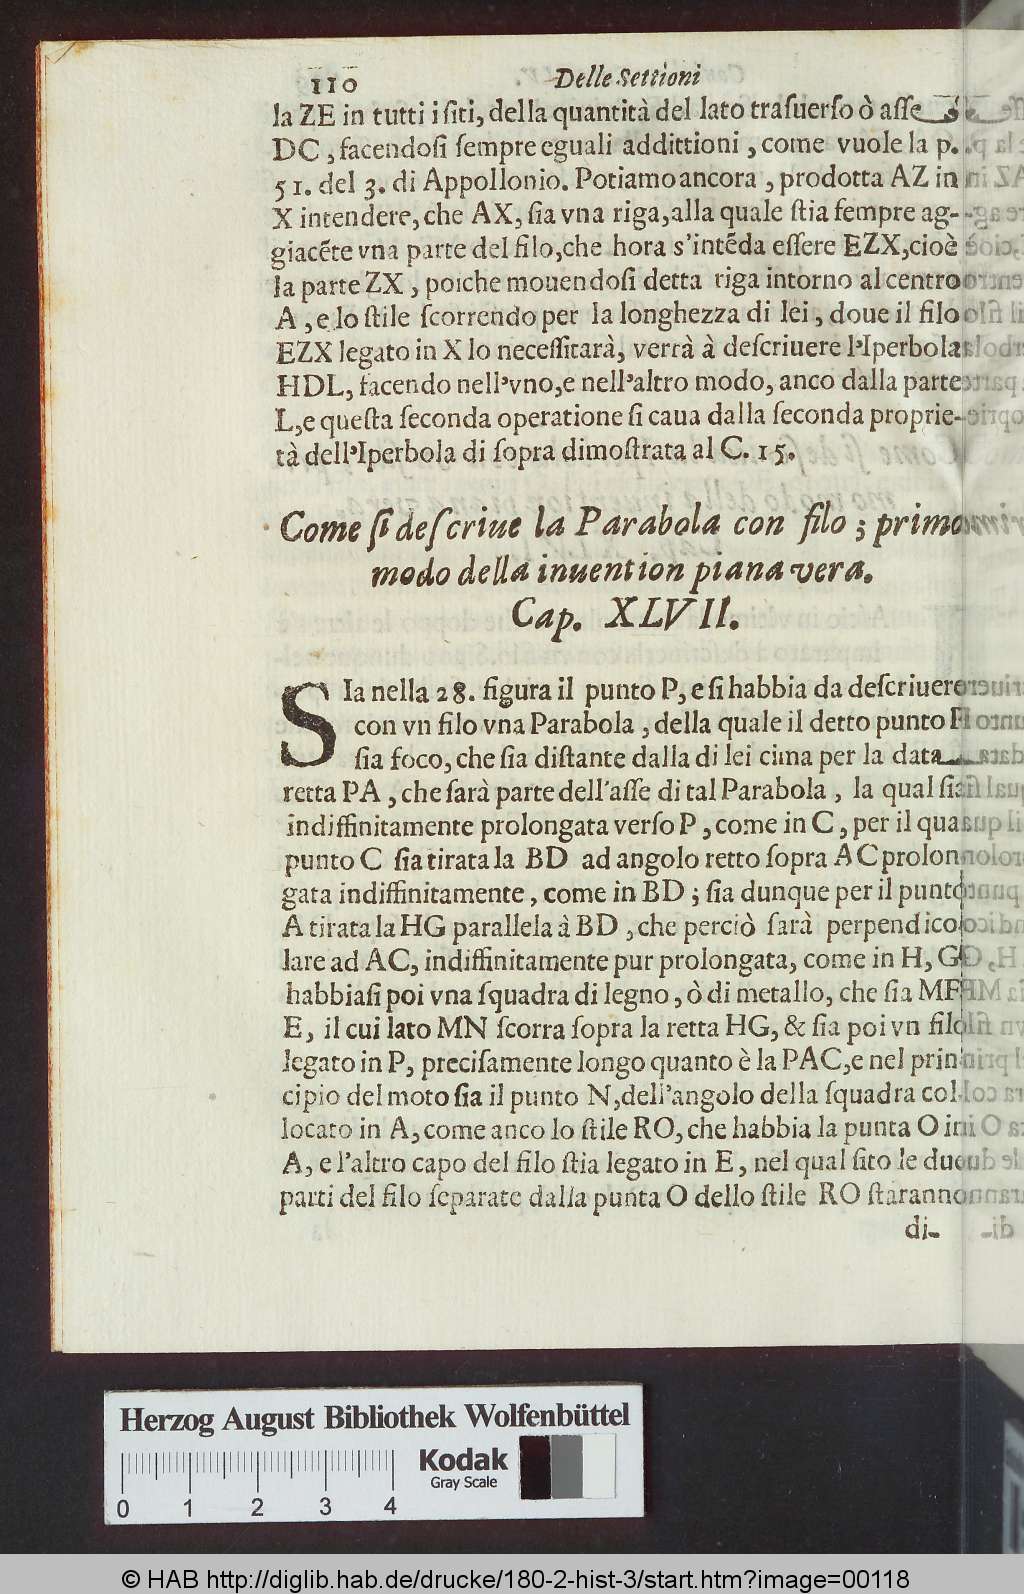 110 Delle Settioni
la ZE in tutti i ſiti, della quantità del lato traſuerſo ò aſſe
DC, facendoſi ſempre eguali addittioni, come vuole la p.
51. del 3. di Appollonio. Potiamo ancora, prodotta AZ in
X intendere, che AX, ſia vna riga, alla quale ſtia ſempre ag-
giacẽte vna parte del filo, che hora s'intẽda eſſere EZX, cioè
la parte ZX, poiche mouendoſi detta riga intorno al centro
A, e lo ſtile ſcorrendo per la longhezza di lei, doue il filo
EZX legato in X lo neceſſitarà, verrà à deſcriuere l'Iperbola
HDL, facendo nell'vno, e nell'altro modo, anco dalla parte
L, e queſta ſeconda operatione ſi caua dalla ſeconda proprie-
tà dell'Iperbola di ſopra dimoſtrata al C. 15.
Come ſi deſcriue la Parabola con filo; primo
modo della inuention piana vera.
Cap. XLVII.
SIa nella 28. figura il punto P, e ſi habbia da deſcriuere
con vn filo vna Parabola, della quale il detto punto P
ſia foco, che ſia diſtante dalla di lei cima per la data
retta PA, che ſarà parte dell'aſſe di tal Parabola, la qual ſia
indiffinitamente prolongata verſo P, come in C, per il qual
punto C ſia tirata la BD ad angolo retto ſopra AC prolon
gata indiffinitamente, come in BD; ſia dunque per il punto
A tirata la HG parallela à BD, che perciò ſarà perpendico
lare ad AC, indiffinitamente pur prolongata, come in H, G
habbiaſi poi vna ſquadra di legno, ò di metallo, che ſia MF
E, il cui lato MN ſcorra ſopra la retta HG, & ſia poi vn filo
legato in P, preciſamente longo quanto è la PAC, e nel prin
cipio del moto ſia il punto N, dell'angolo della ſquadra col-
locato in A, come anco lo ſtile RO, che habbia la punta O in
A, e l'altro capo del filo ſtia legato in E, nel qual ſito le due
parti del filo ſeparate dalla punta O dello ſtile RO ſtaranno
di-
Herzog August Bibliothek Wolfenbüttel
Kodak
Gray Scale
0 1 2 3 4
© HAB http://diglib.hab.de/drucke/180-2-hist-3/start.htm?image=00118